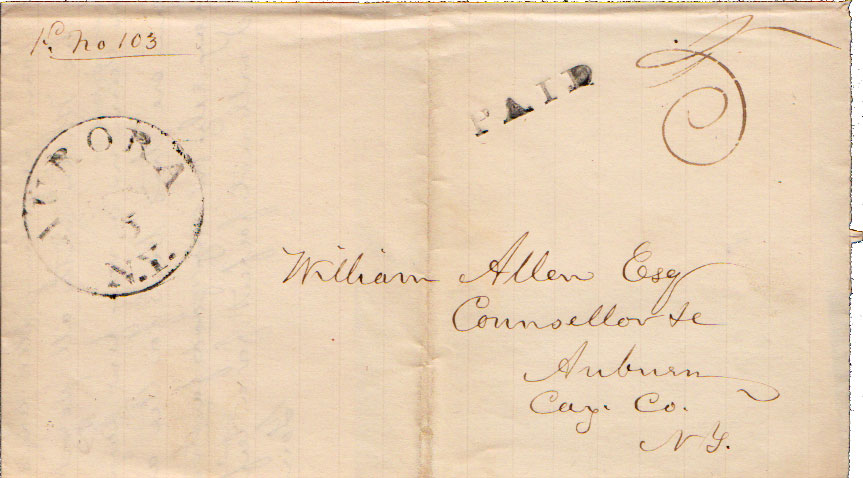 Pd. No 103
PAID
5
AURORA
N.Y.
William Allen Esq
Counsellor &c
Auburn
Cay. Co.
N Y.